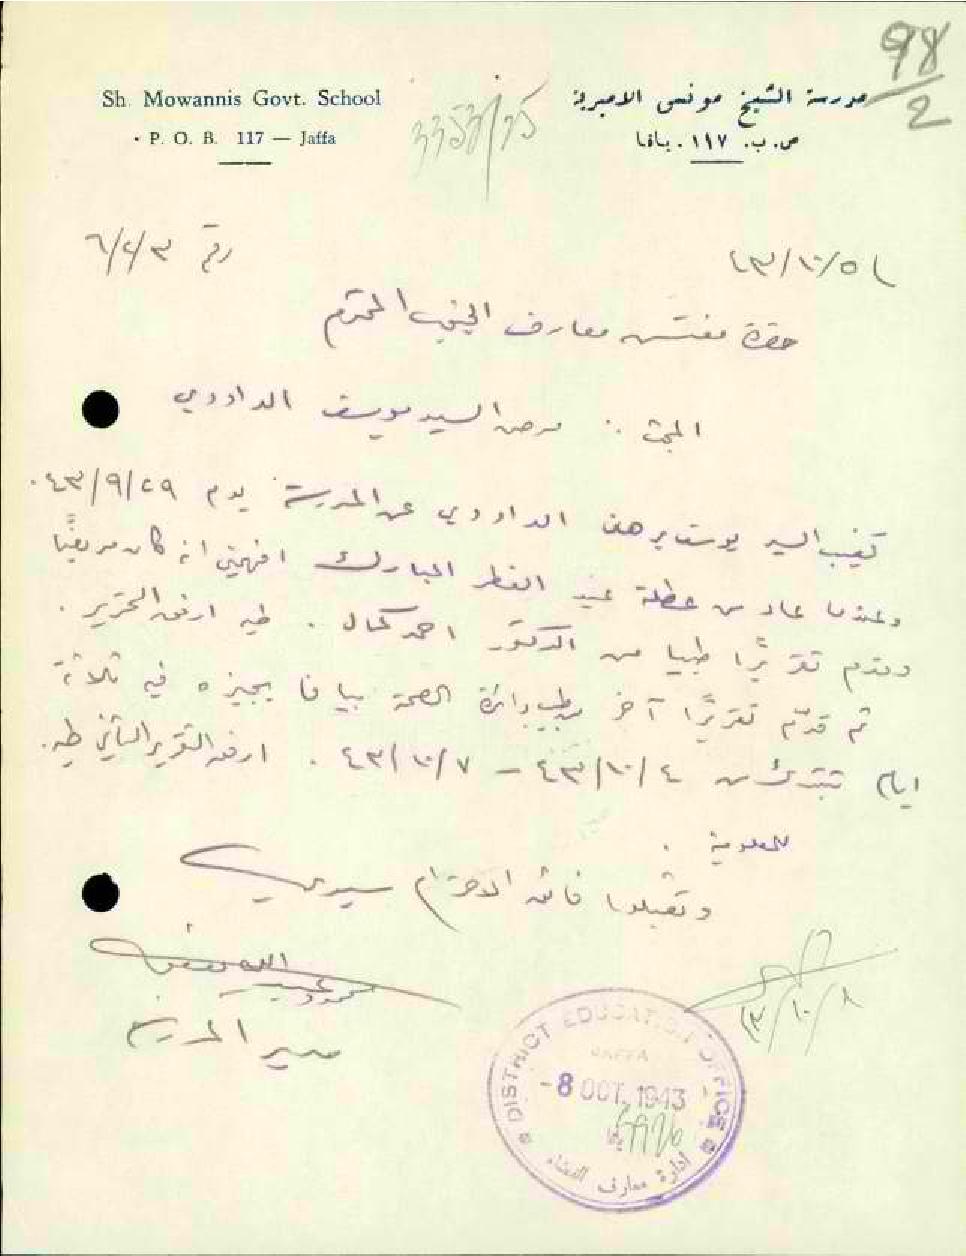 98/2
Sh. Mowannis Govt. School
مدرسة الشيخ مونس الاميرية
P. O. B. 117 — Jaffa
ص.ب. ١١٧. يافا
رقم ٦/٢/٣
٤٣/١٠/٥
حضرة مفتش معارف الجنوب المحترم
البحث : مرض السيد يوسف الداودي
تغيب السيد يوسف الداودي عن المدرسة يوم ٤٣/٩/٢٩.
وعندما عاد من عطلة عيد الفطر المبارك افهمني انه كان مريضًا
وقدم تقريرًا طبيا من الدكتور احمد كمال . طيه ارفق التقرير .
ثم قدّم تقريرًا آخر من طبيب دائرة الصحة بيافا يجيزه فيه ثلاثة
ايام تبتدئ من ٤٣/١٠/٤ – ٤٣/١٠/٧ . ارفق التقرير الثاني طيه.
للمعلومية .
وتفضلوا فائق الاحترام سيدي
مدير المدرسة
٤٣/١٠/٨
DISTRICT EDUCATION OFFICE
JAFFA
-8 OCT. 1943
ادارة معارف اللواء